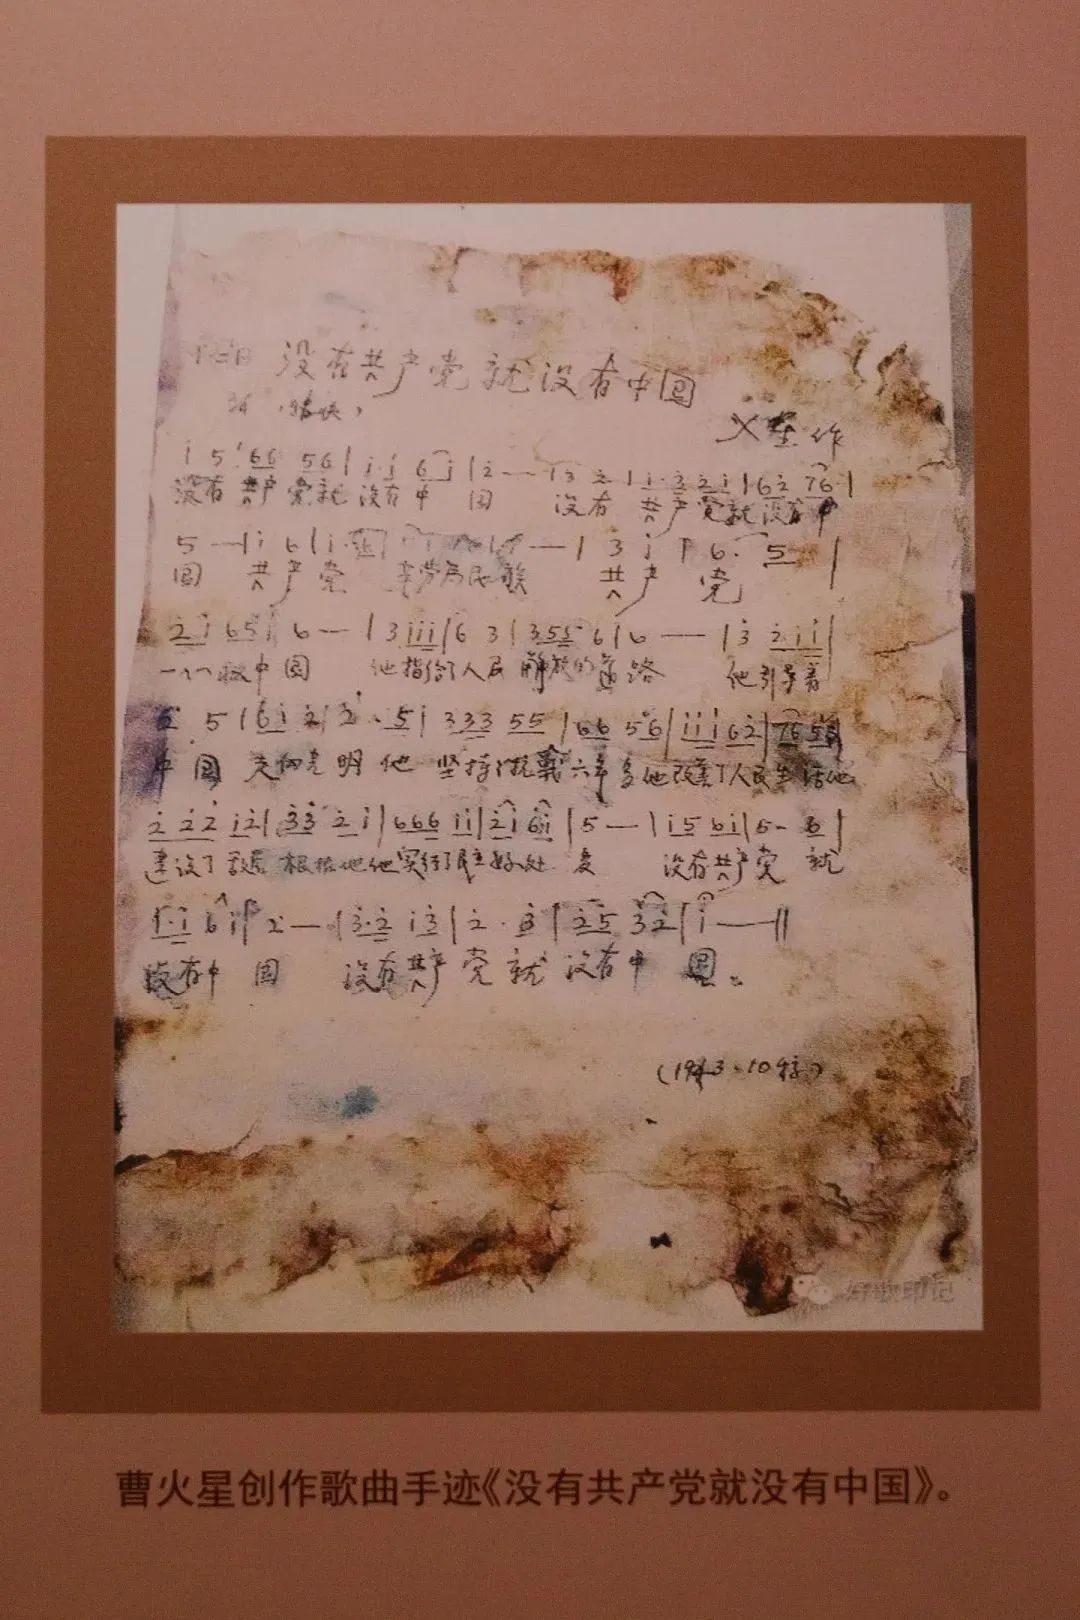 1=B 没有共产党就没有中国
2/4 （稍快）
火星作
i 5 66 56 | i·i 6 i | 2 — | 3 2 | i·3 2 i | 62 76 |
没有共产党就没有中国 没有共产党就没有中
5 — | i 6 | i· — |
国 共产党 辛劳为民族
3 i | 6· 5 |
共产党
2 i 65 | 6 — | 3 iii | 6 3 | 355 6 | 6 — | 3 2ii |
一心救中国 他指给了人民解放的道路 他引导着
6 5 | 6i 2 | 2· 5 | 333 55 | 66 56 | iii 62 | 76 55
中国走向光明他坚持了抗战六年多他改善了人民生活他
2 22 i2 | 33 2 i | 666 ii | 2i 6i | 5 — | i5 6i | 5· 6 |
建设了敌后根据地他实行了民主好处多 没有共产党就
i·i 6 i | 2 — | 3·2 i3 | 2· 3 | 25 32 | i — ‖
没有中国 没有共产党就没有中国。
(1943·10稿)
好歌印记
曹火星创作歌曲手迹《没有共产党就没有中国》。